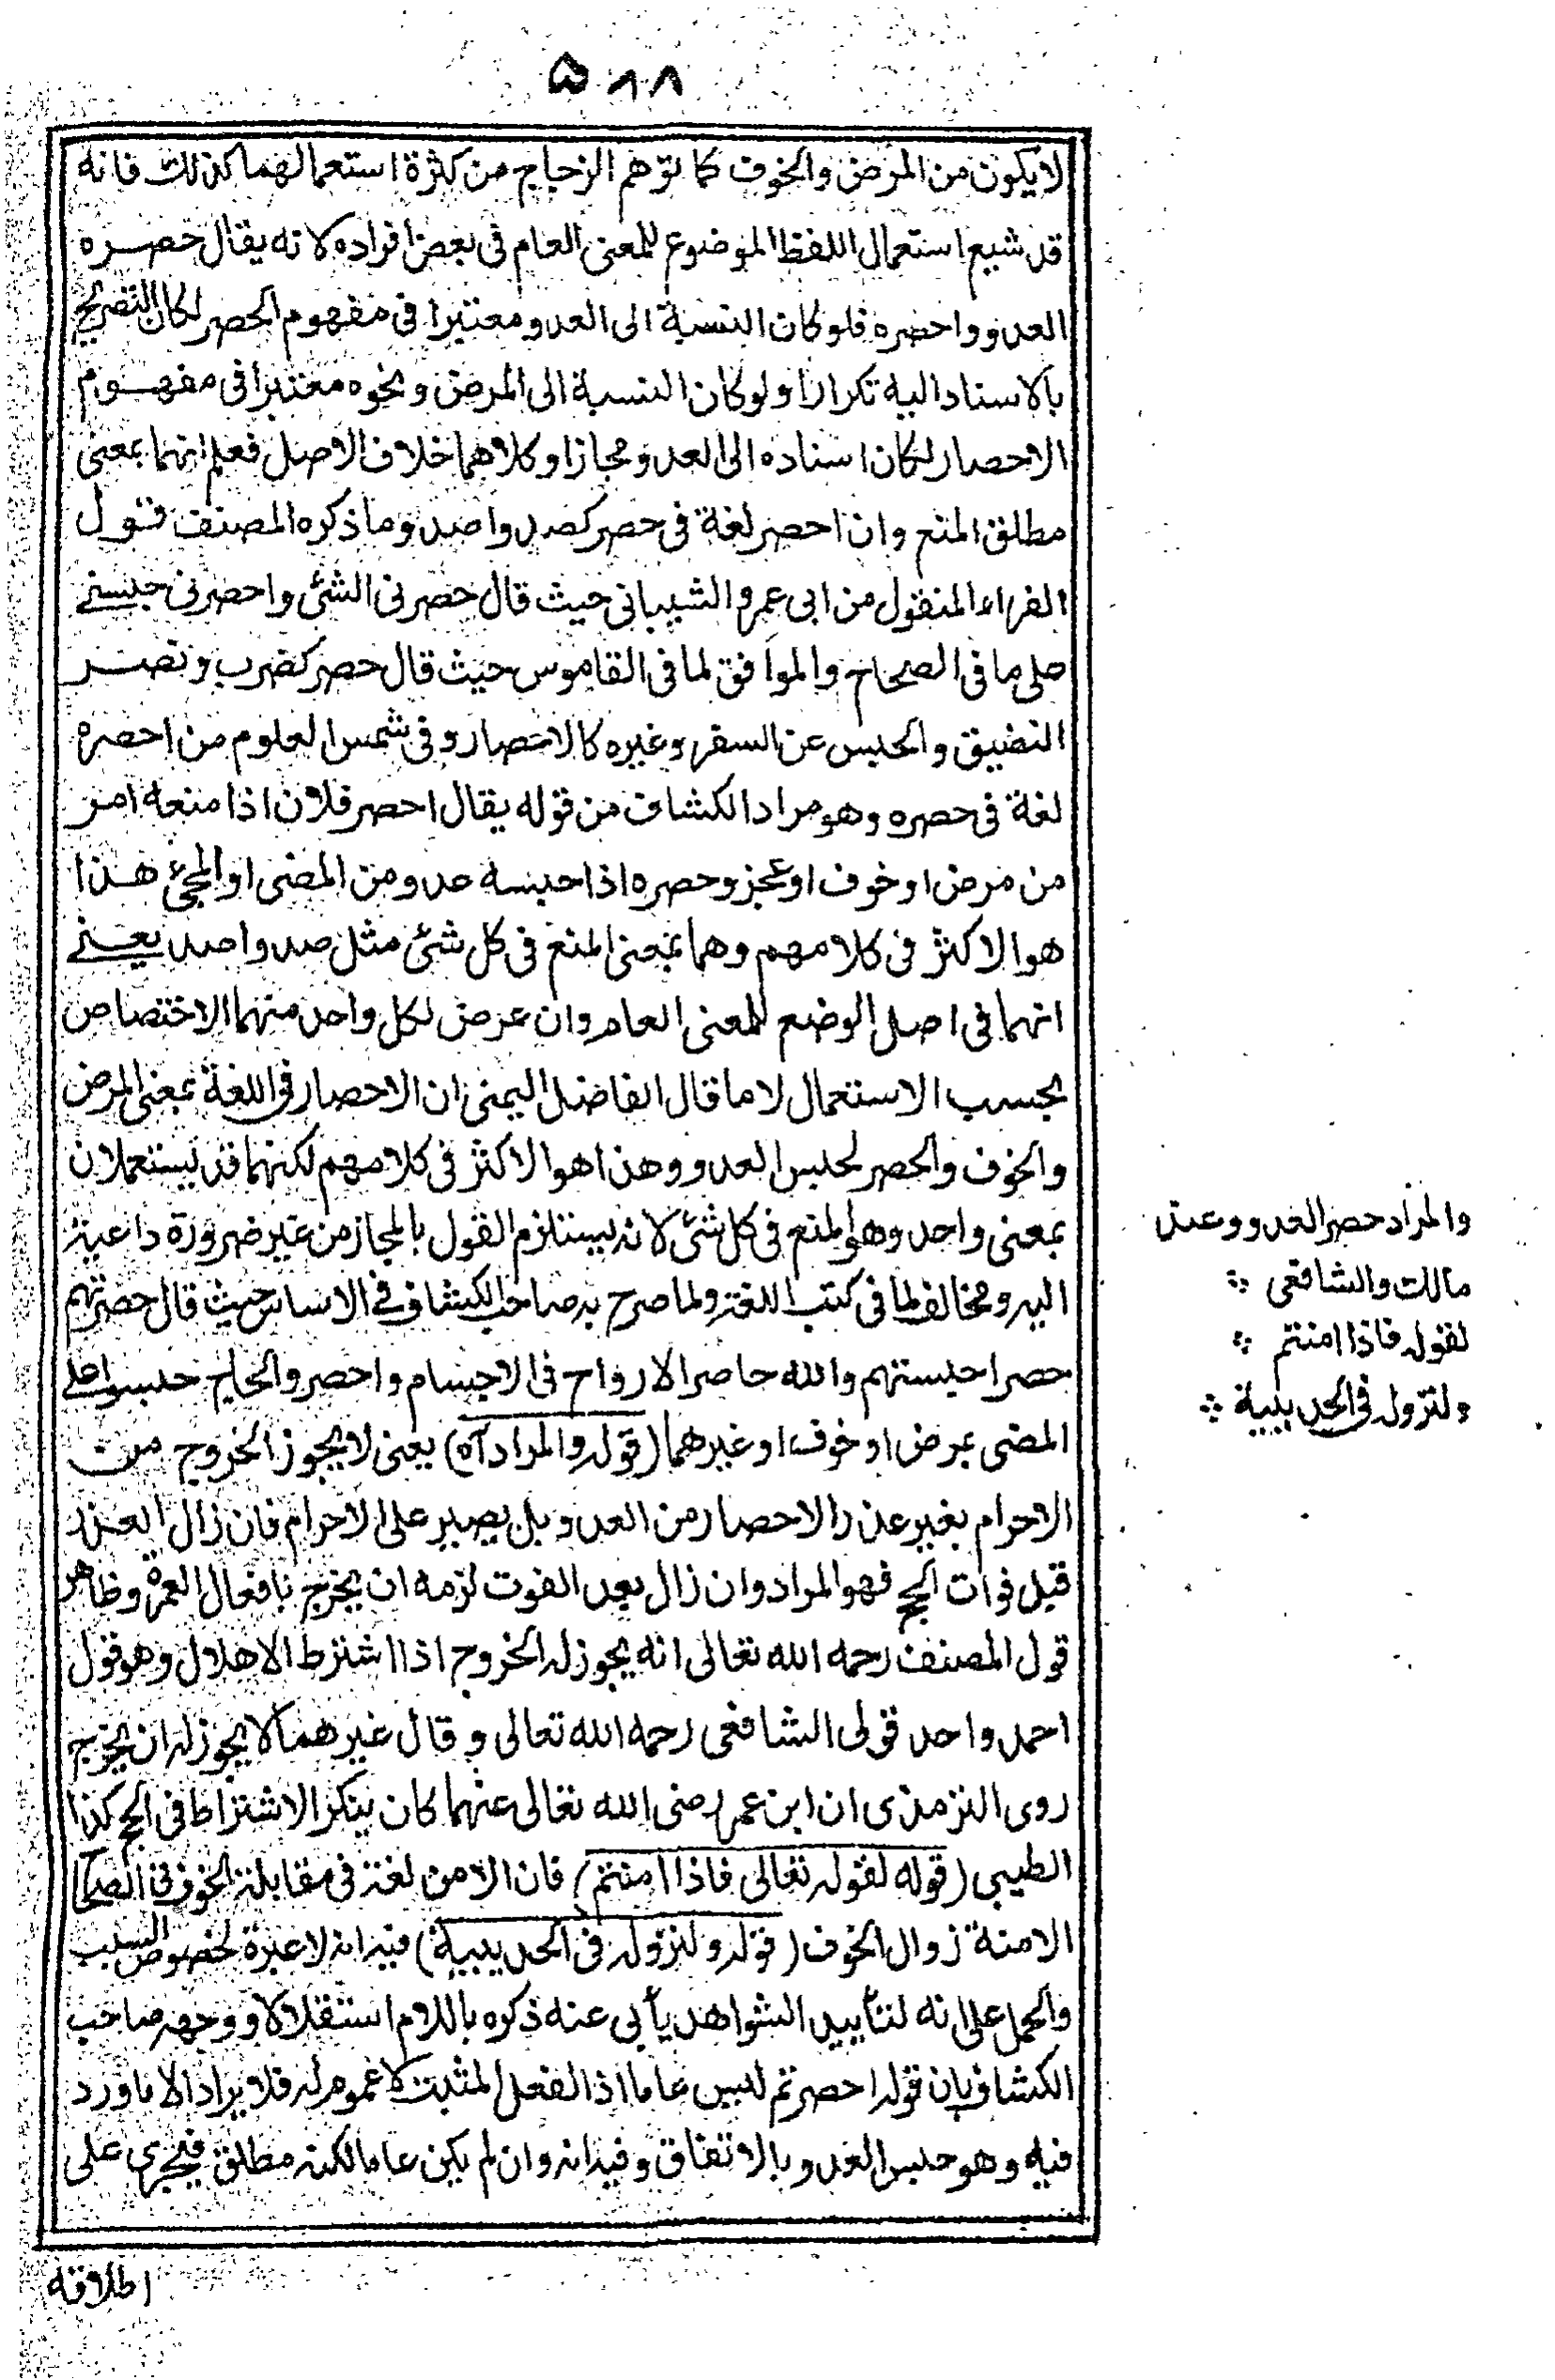 ٥٨٨
لا يكون من المرض والخوف كما توهم الزجاج من كثرة استعمالهما كذلك فانه
قد شيع استعمال اللفظ الموضوع للمعنى العام في بعض افراده لانه يقال حصره
العدو واحصره فلو كان النسبة الى العدو معتبرا في مفهوم الحصر لكان التصريح
بالاسناد اليه تكرارا ولو كان النسبة الى المرض ونحوه معتبرا في مفهوم
الاحصار لكان اسناده الى العدو مجازا وكلاهما خلاف الاصل فعلم انهما بمعنى
مطلق المنع وان احصر لغة في حصر كصد واصد وما ذكره المصنف قول
الفراء المنقول من ابى عمرو الشيبانى حيث قال حصرنى الشئ واحصرنى حبسنے
على ما في الصحاح والموافق لما في القاموس حيث قال حصر كضرب ونصر
التضييق والحبس عن السفر وغيره كالاحصار وفي شمس العلوم من احصره
لغة في حصره وهو مراد الكشاف من قوله يقال احصر فلان اذا منعه امر
من مرض او خوف او عجز وحصره اذا حبسه عدو من المضى او المجئ هذا
هو الاكثر في كلامهم وهما بمعنى المنع في كل شئ مثل صد واصد يعنے
انهما في اصل الوضع للمعنى العام وان عرض لكل واحد منهما الاختصاص
بحسب الاستعمال لا ما قال الفاضل اليمنى ان الاحصار في اللغة بمعنى المرض
والخوف والحصر لحبس العدو وهذا هو الاكثر في كلامهم لكنهما قد يستعملان
بمعنى واحد وهو المنع في كل شئ لانه يستلزم القول بالمجاز من غير ضرورة داعية
اليه ومخالف لما في كتب اللغة ولما صرح به صاحب الكشاف في الاساس حيث قال حصرتهم
حصرا حبستهم والله حاصر الارواح في الاجسام واحصر والحاج حبسوا على
المضى بمرض او خوف او غيرهما (قوله والمراد آه) يعنى لا يجوز الخروج من
الاحرام بغير عذر الاحصار من العدو بل يصبر على الاحرام فان زال العذر
قبل فوات الحج فهو المراد وان زال بعد الفوت لزمه ان يخرج بافعال العمرة وظاهر
قول المصنف رحمه الله تعالى انه يجوز له الخروج اذا اشترط الاهلال وهو قول
احمد واحد قولى الشافعى رحمه الله تعالى وقال غيرهما لا يجوز له ان يخرج
روى الترمذى ان ابن عمر رضى الله تعالى عنهما كان ينكر الاشتراط في الحج كذا
الطيبى (قوله لقوله تعالى فاذا امنتم) فان الامن لغة في مقابلة الخوف في الصحا
الامنة زوال الخوف (قوله ولنزوله في الحديبية) فيه انه لا عبرة لخصوص السبب
والحمل على انه لتأييد الشواهد يأبى عنه ذكره باللام استقلالا ووجهه صاحب
الكشاف بان قوله احصرتم ليس عاما اذ الفعل المثبت لا عموم له فلا يراد الا ما ورد
فيه وهو حبس العدو بالاتفاق وفيه انه وان لم يكن عاما لكنه مطلق فيجرى على
اطلاقه
والمراد حصر العدو وعند
مالك والشافعى ؞
لقوله فاذا امنتم ؞
ولنزوله في الحديبية ؞